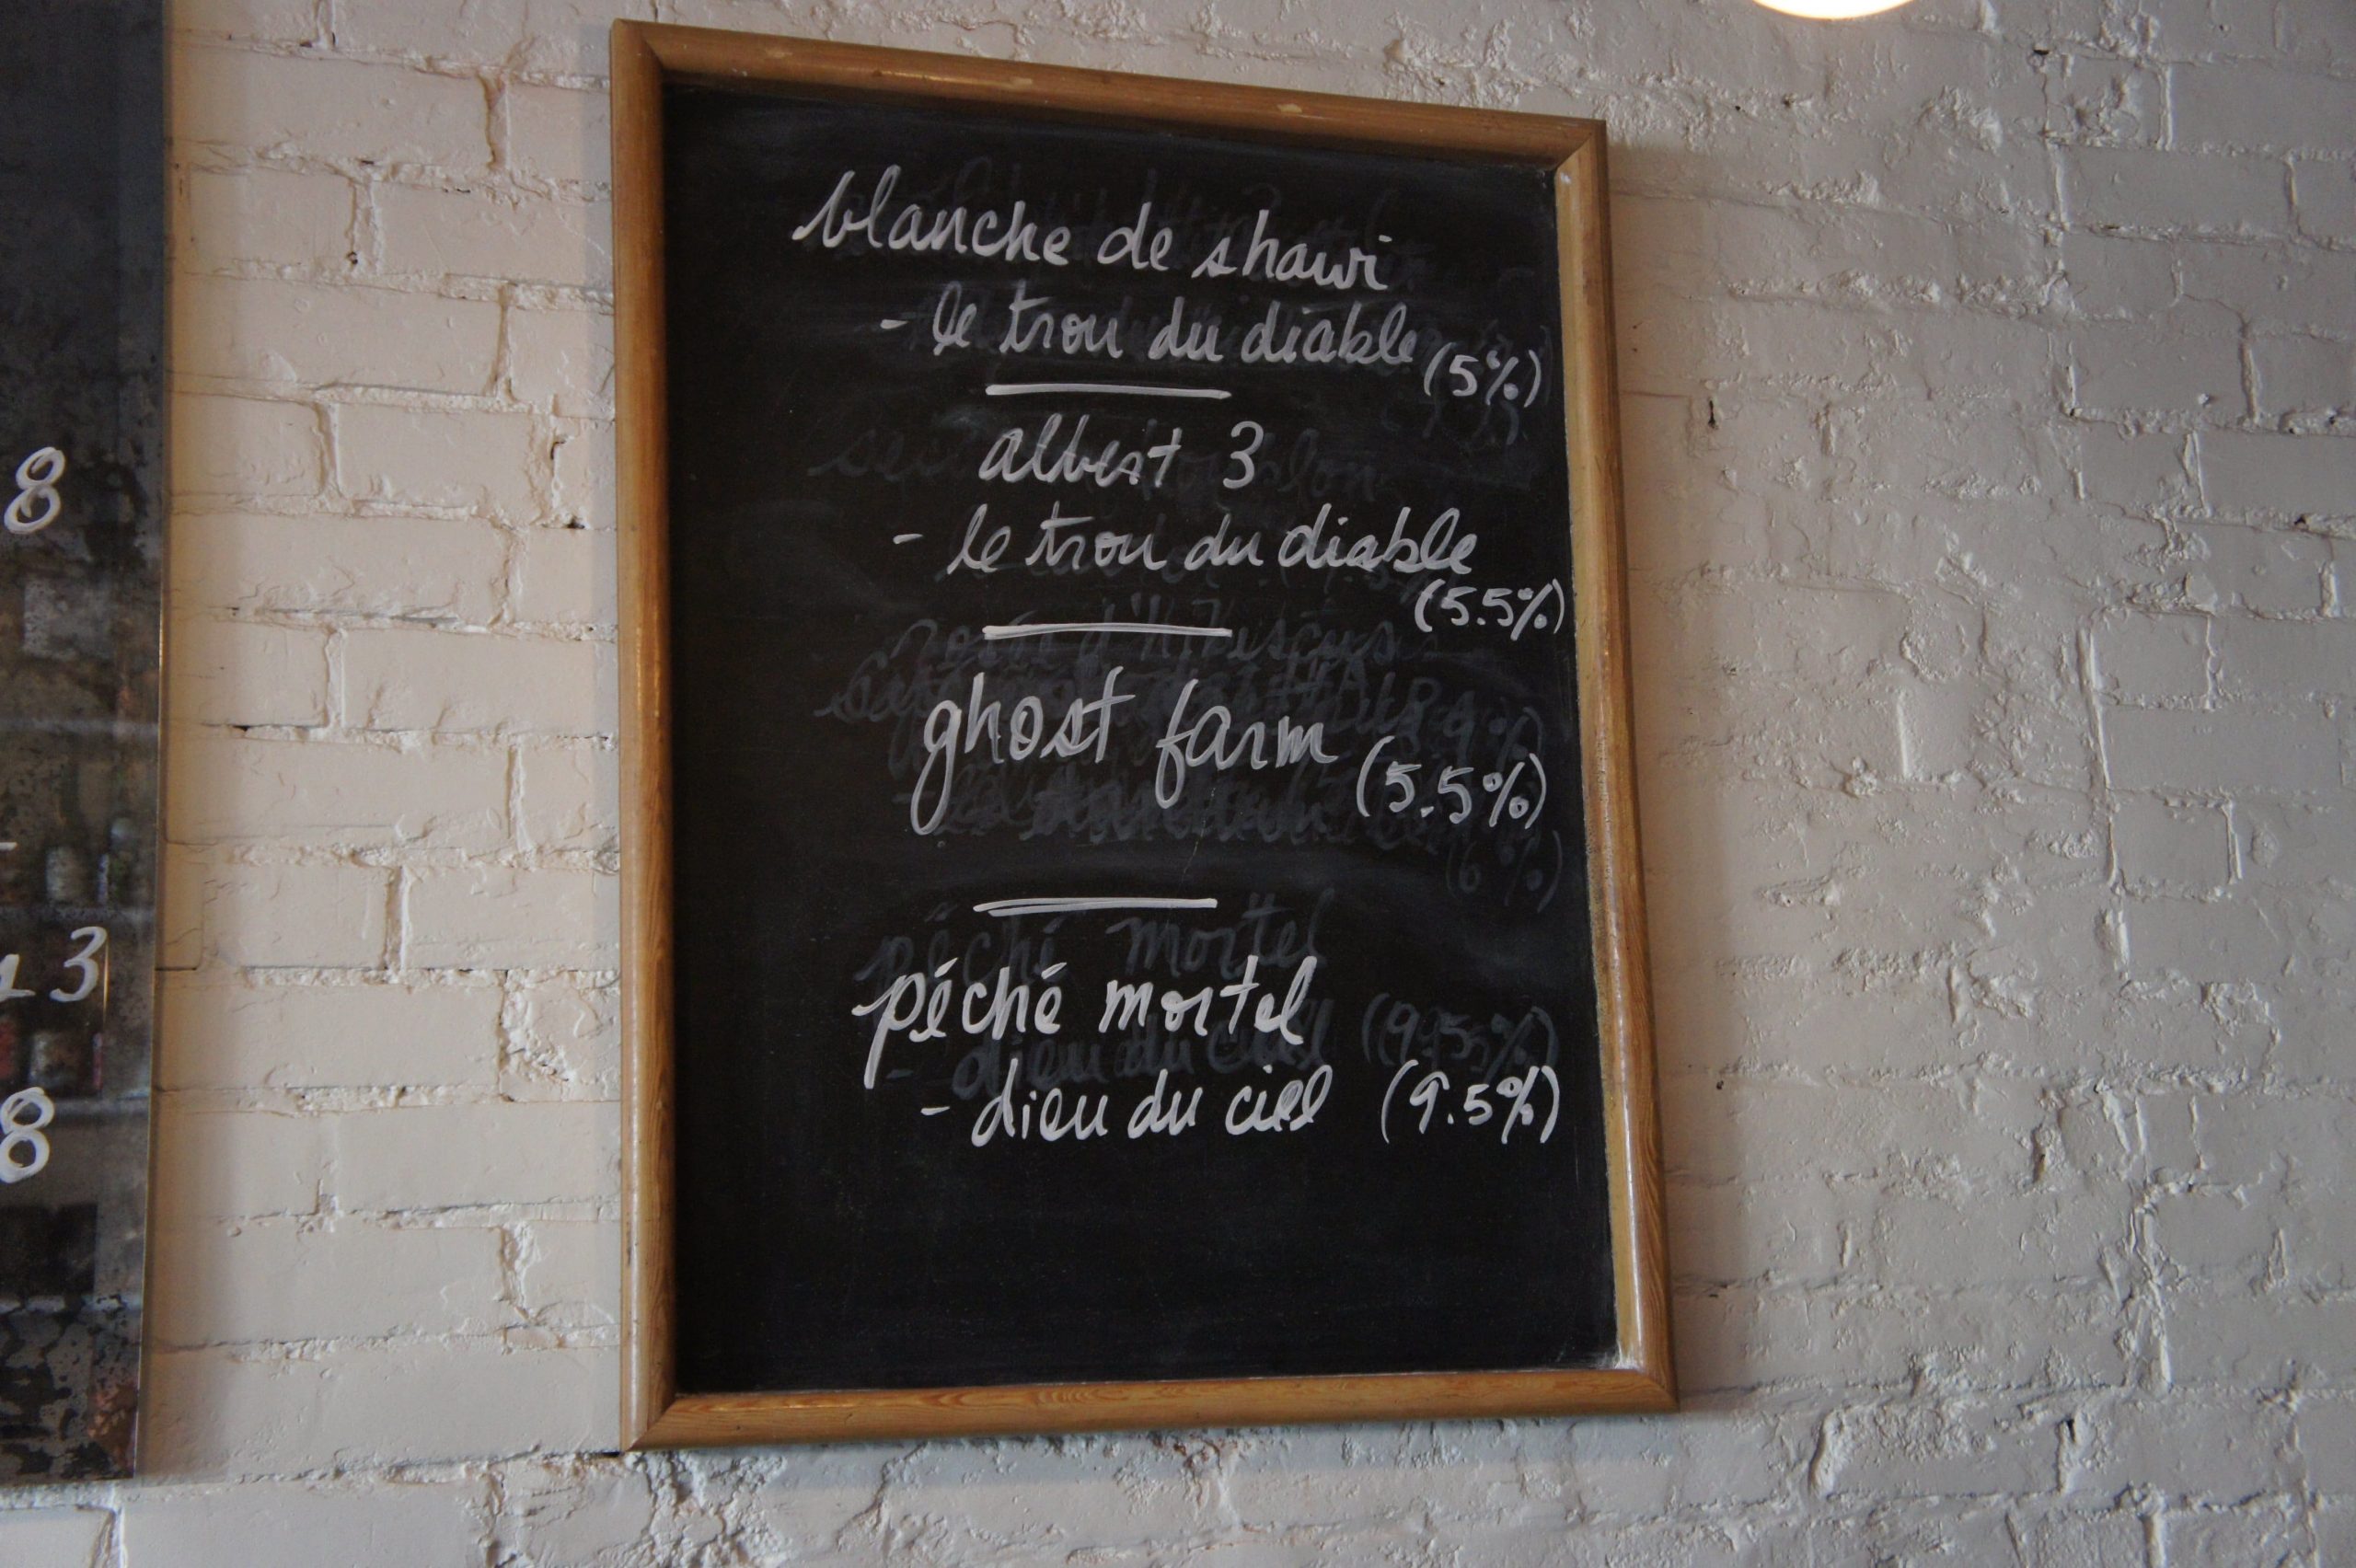 blanche de shawi
- le trou du diable
(5%)
albert 3
- le trou du diable
(5.5%)
ghost farm
(5.5%)
péché mortel
- dieu du ciel (9.5%)
8
3
8